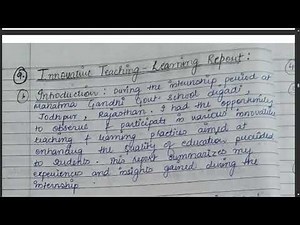 9. Innovative Teaching - Learning Report :
Introduction : During the internship period at
Mahatma Gandhi Govt. School digadi,
Jodhpur, Rajasthan. I had the opportunity
to observe & participate in various innovative
teaching & learning practices aimed at
enhancing the quality of education provided
to students. This report summarizes my
experiences and insights gained during the
internship.